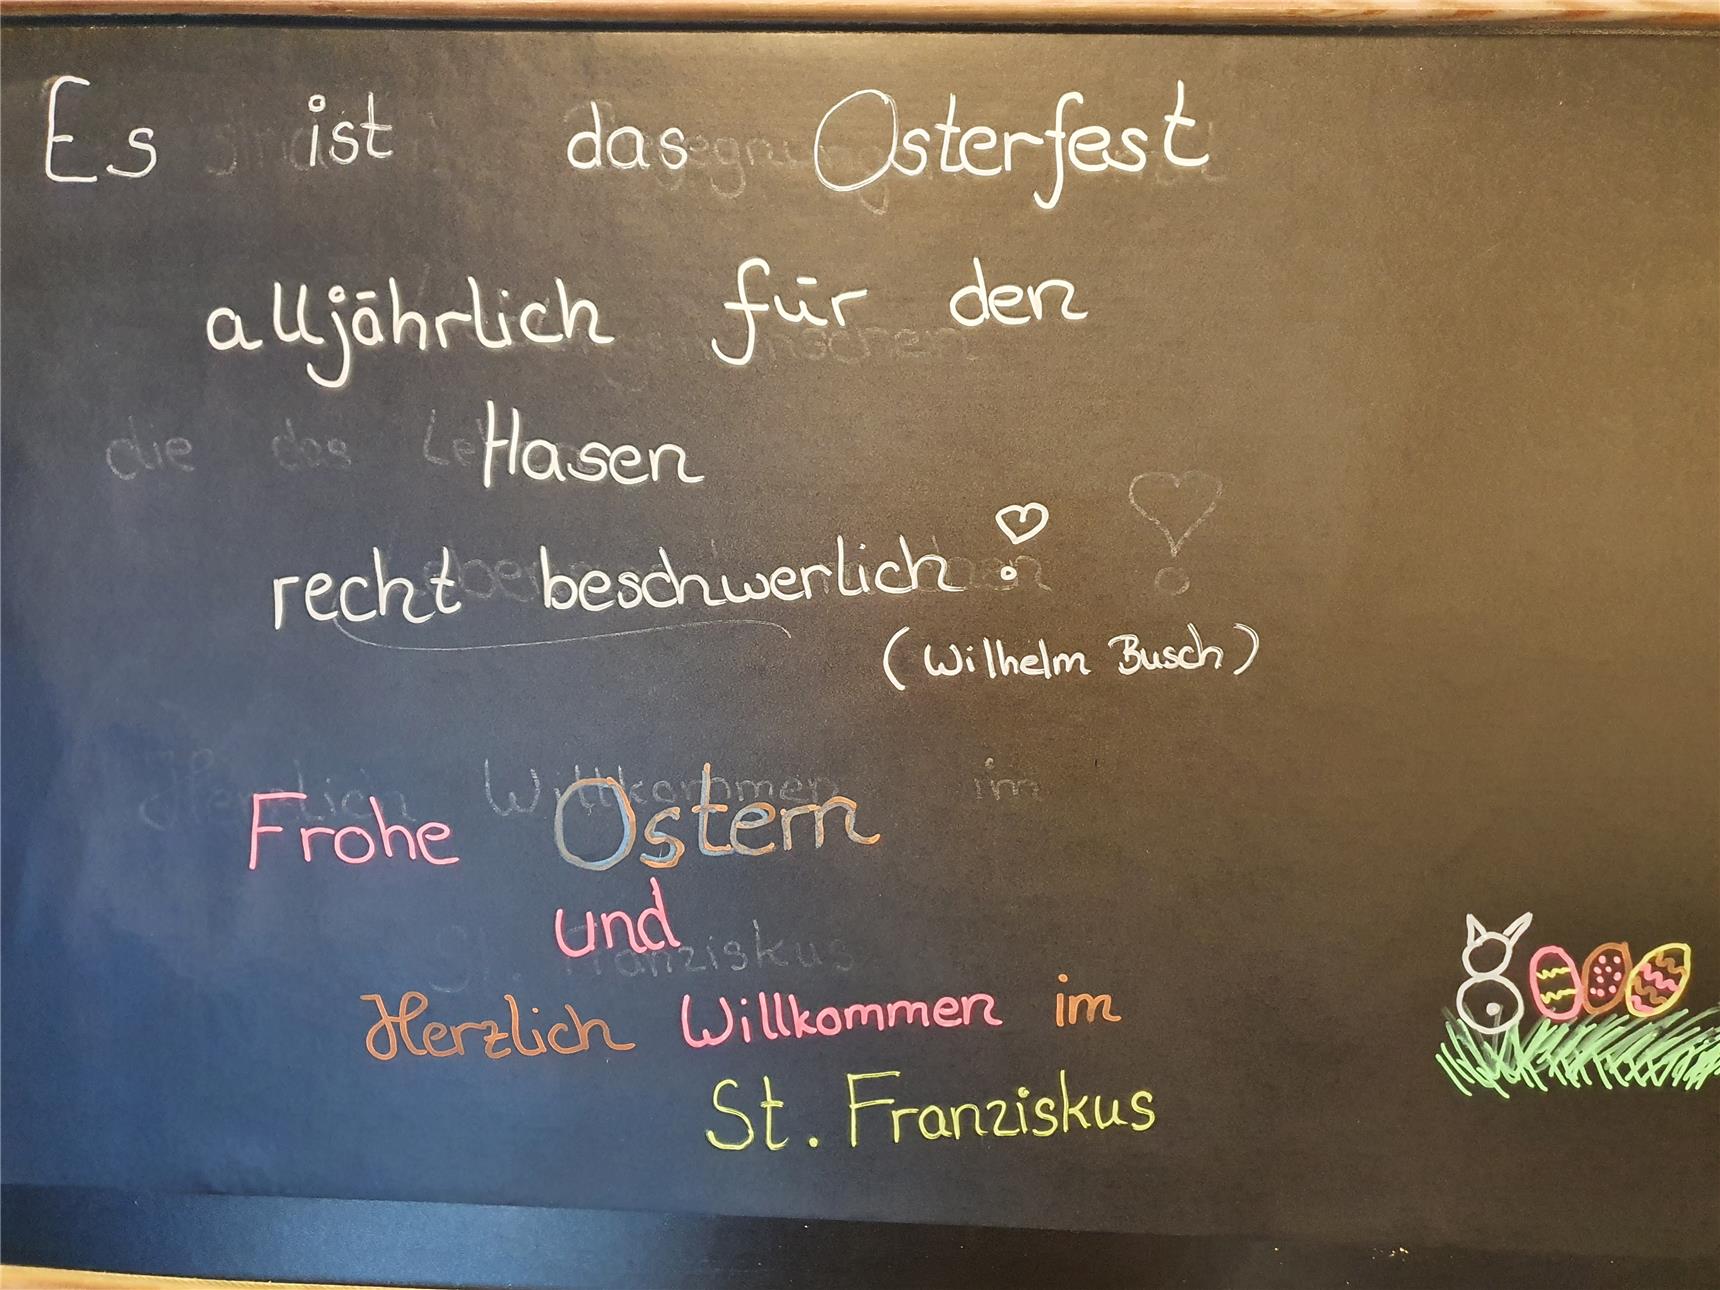 Es ist das Osterfest
alljährlich für den
Hasen
recht beschwerlich!
(Wilhelm Busch)
Frohe Ostern
und
Herzlich Willkommen im
St. Franziskus